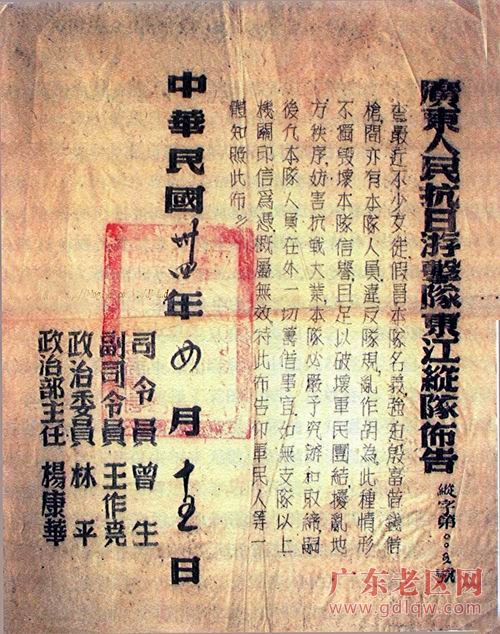 廣東人民抗日游擊隊東江縱隊佈告
縱字第〇〇五號
查最近不少歹徒假冒本隊名義強迫殷富借錢借
槍間亦有本隊人員違反隊規亂作胡為此種情形
不獨毀壞本隊信譽且足以破壞軍民團結擾亂地
方秩序妨害抗戰大業本隊必嚴予究辦和取締嗣
後凡本隊人員在外一切籌借事宜如無支隊以上
機關印信為憑概屬無效特此布告仰軍民人等一
體知照此布
中華民國卅四年 月十五日
司令員 曾生
副司令員 王作堯
政治委員 林平
政治部主任 楊康華
广东老区网
www.gdlqw.com